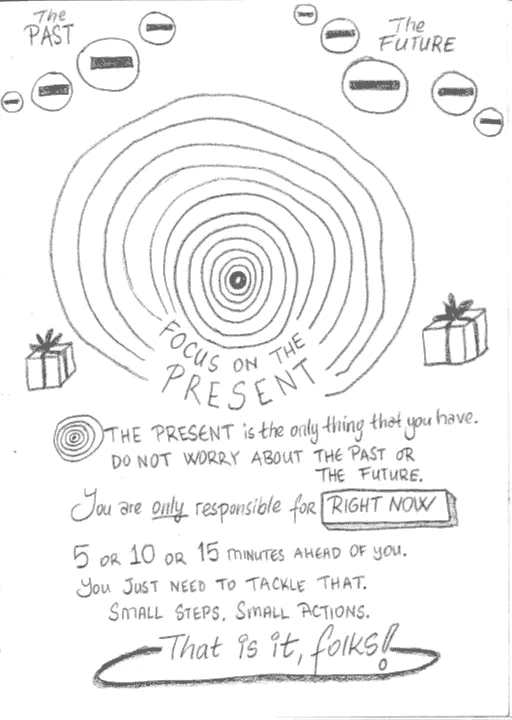 The
PAST
The
FUTURE
FOCUS ON THE
PRESENT
THE PRESENT is the only thing that you have.
DO NOT WORRY ABOUT THE PAST OR
THE FUTURE.
You are only responsible for RIGHT NOW
5 OR 10 OR 15 MINUTES AHEAD OF YOU.
YOU JUST NEED TO TACKLE THAT.
SMALL STEPS, SMALL ACTIONS.
That is it, folks!